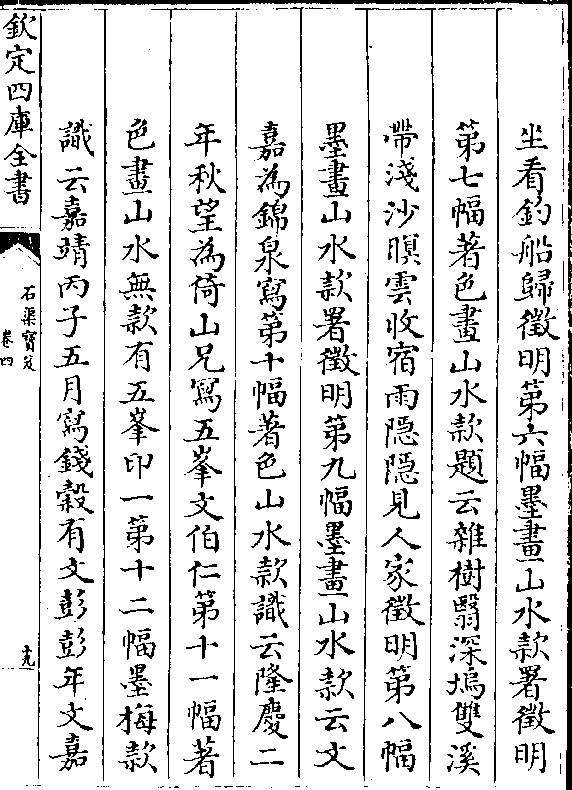 坐看釣船歸徵明第六幅墨畫山水款署徵明
第七幅著色畫山水款題云雜樹翳深塢雙溪
帶淺沙暝雲收宿雨隠隠見人家徵明第八幅
墨畫山水款署徵明第九幅墨畫山水款云文
嘉為錦泉寫第十幅著色山水款識云隆慶二
年秋望為倚山兄寫五峯文伯仁第十一幅著
色畫山水無款有五峯印一第十二幅墨梅款
識云嘉靖丙子五月寫錢榖有文彭彭年文嘉
欽定四庫全書
石渠寳笈
卷四
十九